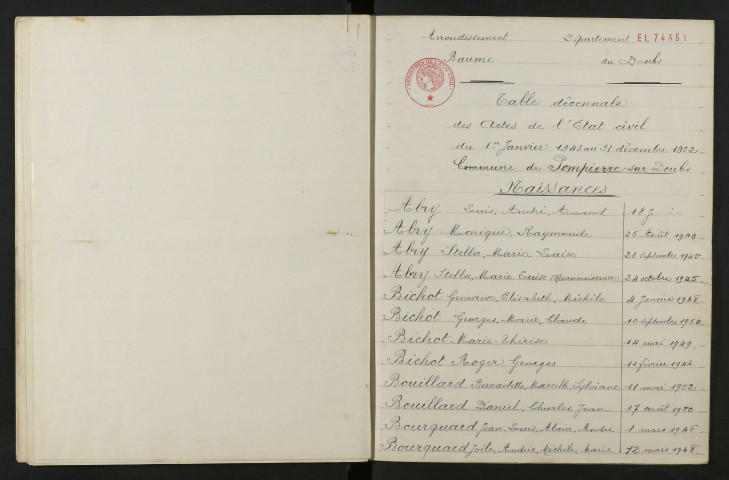 Arrondissement Département EL 74351
Baume du Doubs
REGISTRES DE L'ETAT CIVIL
Table décennale
des Actes de l'Etat civil
du 1er Janvier 1943 au 31 décembre 1952
Commune de Pompierre-sur-Doubs
Naissances
Abry Louis, André, Armand
Abry Monique, Raymonde 25 Août 1943
Abry Stella, Marie Louise 22 septembre 1945
Abry Stella, Marie Louise (Reconnaissance) 24 octobre 1945
Bichot Geneviève, Elisabeth, Michèle 4 Janvier
Bichot Georges, Marie, Claude 10 septembre 1950
Bichot Marie-Thérèse 14 mai 1949
Bichot Roger Georges 11 février 1944
Bouillard Bernadette, Marcelle, Sylviane 11 mai 1952
Bouillard Daniel, Charles, Jean 17 août 1950
Bourquard Jean, Louis, Alain, André 1 mars
Bourquard Joële, Andrée, Michèle, Marie 12 mars